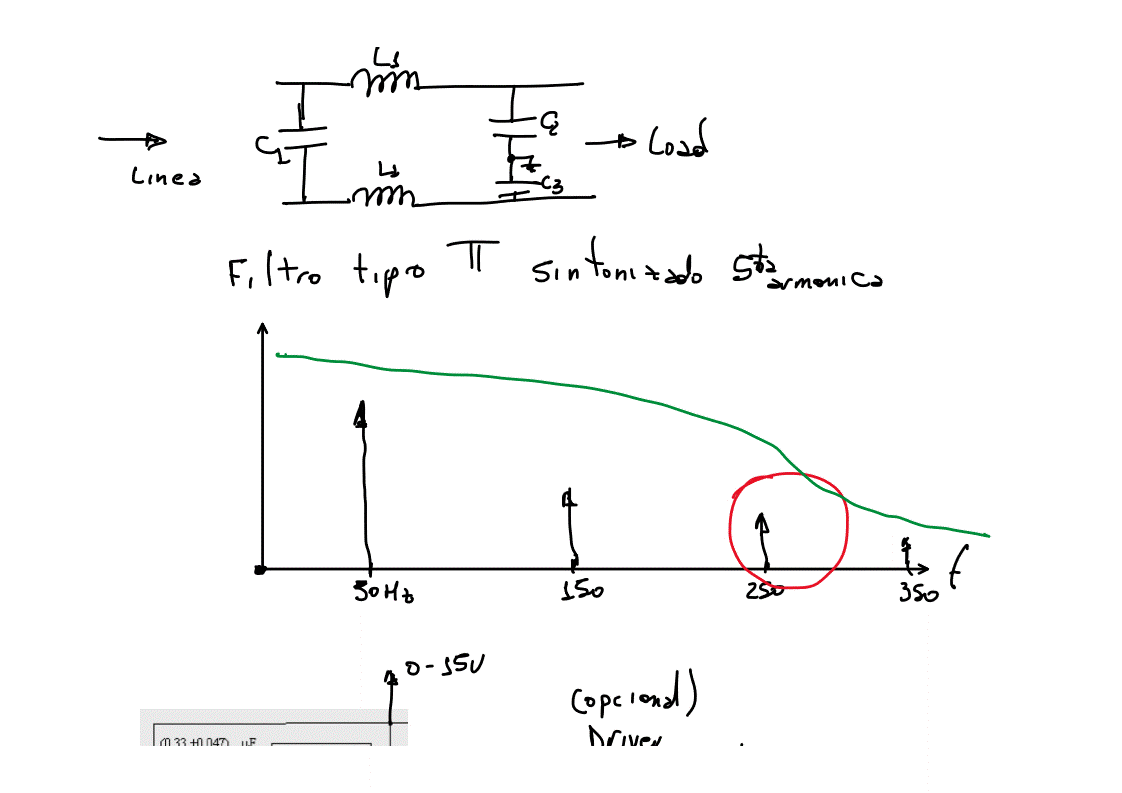 L1
C1
C2
Load
Linea
L1
C3
Filtro tipo π sintonizado 5ta armonica
50Hz
150
250
350
f
0-15V
(opcional)
Driver
(0.33 +0.047) uF